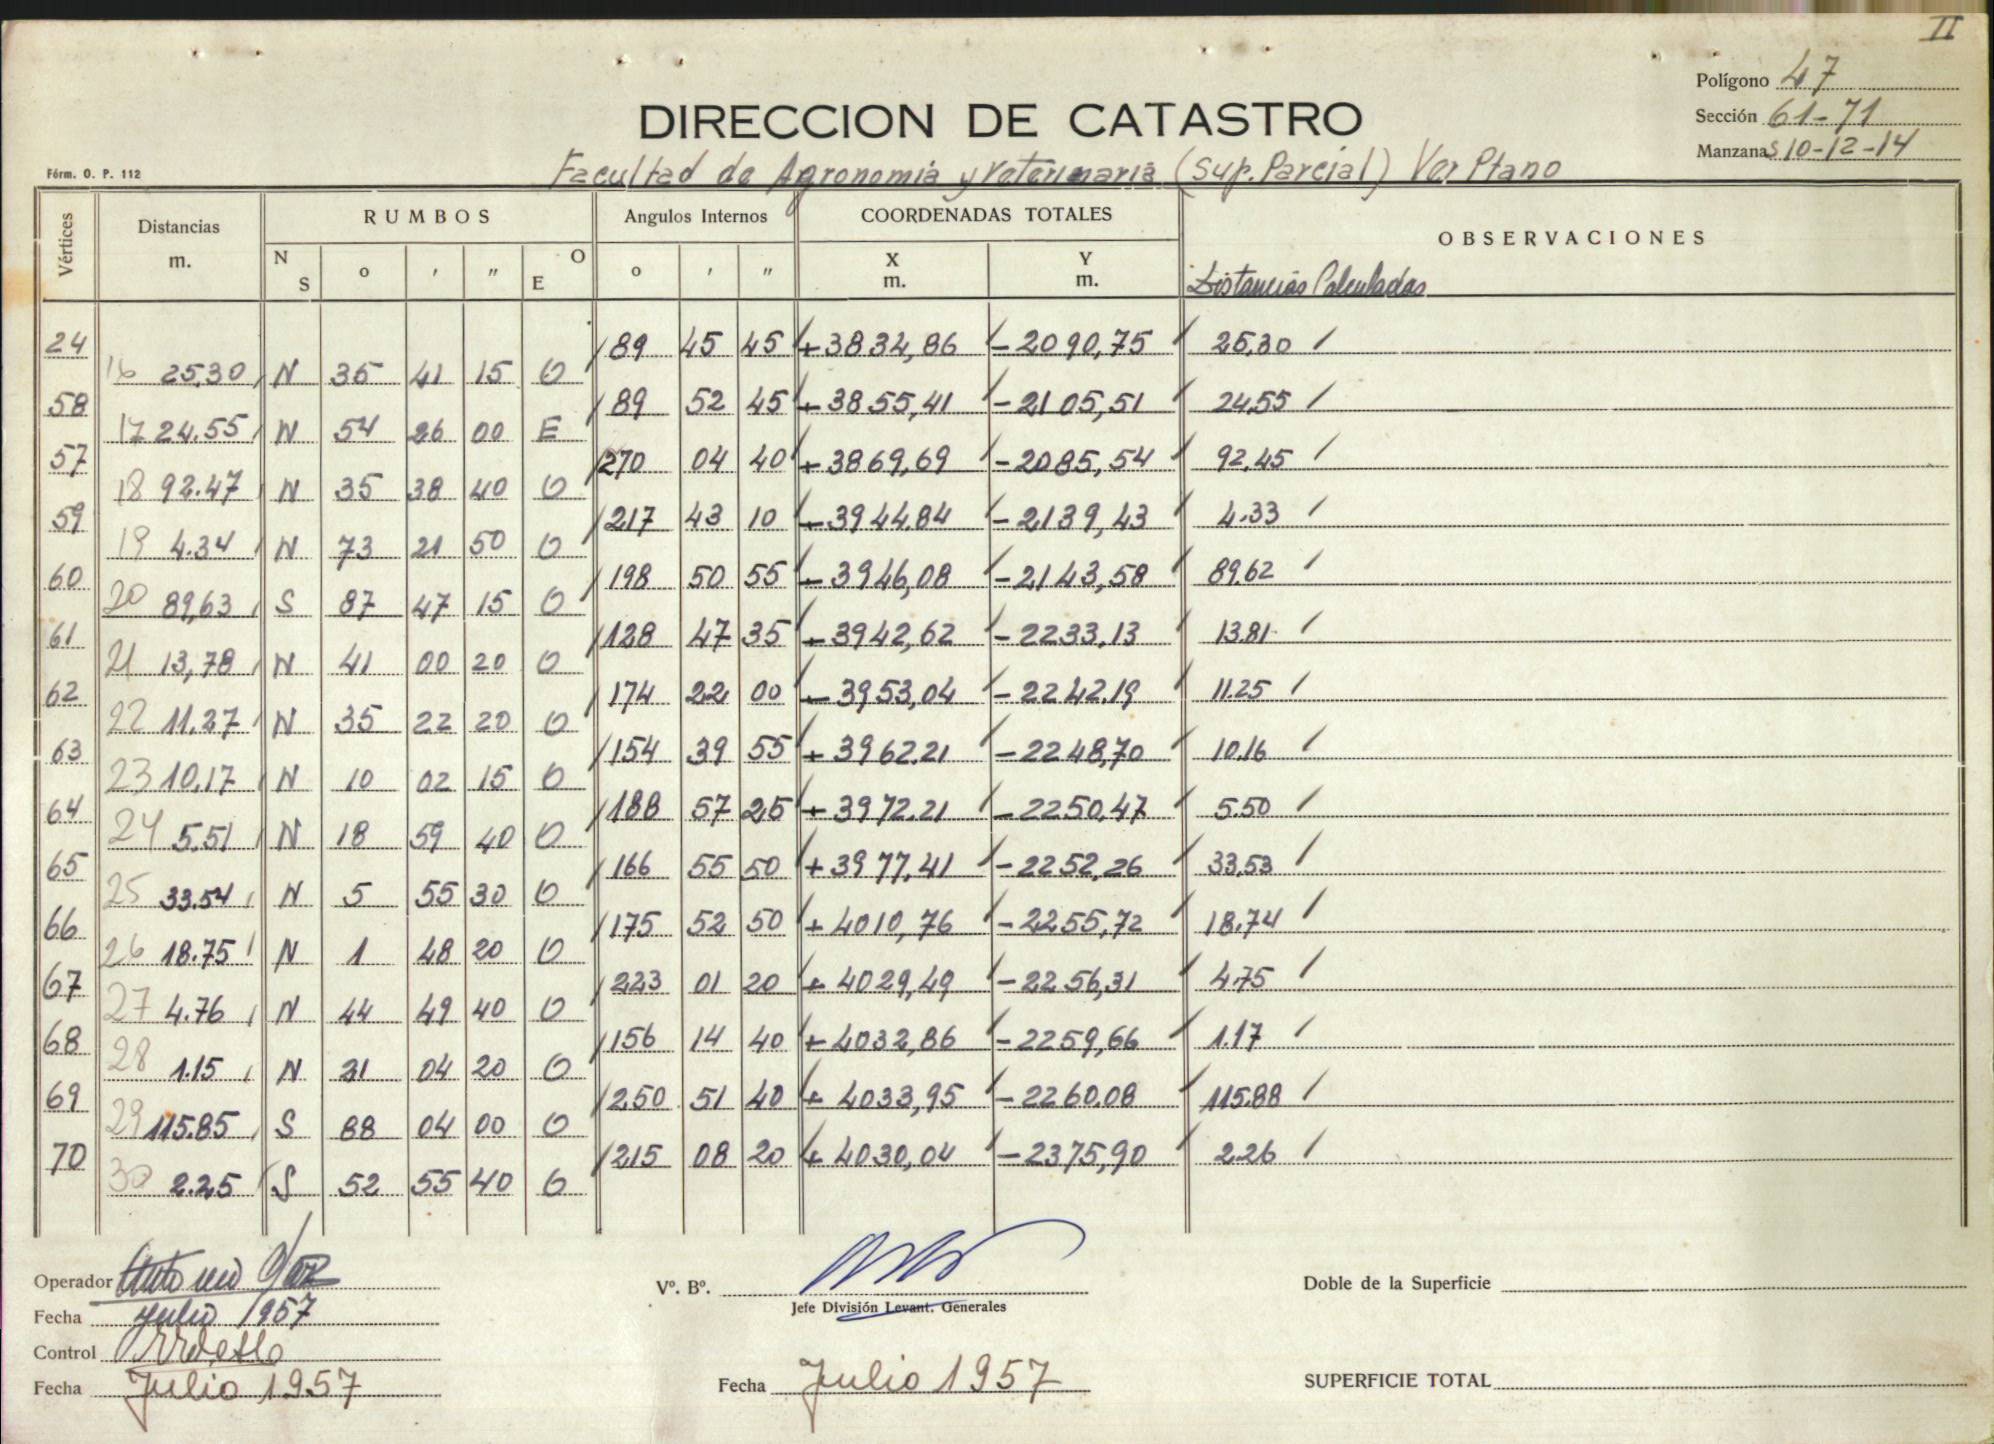 II
Polígono 47
DIRECCION DE CATASTRO
Sección 61-71
Manzanas 10-12-14
Fórm. O. P. 112
Facultad de Agronomia y Veterinaria (Sup. Parcial) Ver Plano
Vértices Distancias m. RUMBOS Angulos Internos COORDENADAS TOTALES OBSERVACIONES
N S o ' " E O o ' " X m. Y m. Distancias Calculadas
24 89 45 45 +3834,86 -2090,75 25,30
16 25,30 N 35 41 15 O
58 89 52 45 +3855,41 -2105,51 24,55
17 24.55 N 54 26 00 E
57 270 04 40 +3869,69 -2085,54 92,45
18 92.47 N 35 38 40 O
59 217 43 10 +3944.84 -2139,43 4.33
19 4.34 N 73 21 50 O
60 198 50 55 +3946,08 -2143,58 89,62
20 89,63 S 87 47 15 O
61 128 47 35 +3942,62 -2233,13 13.81
21 13,78 N 41 00 20 O
62 174 22 00 +3953,04 -2242.19 11.25
22 11.27 N 35 22 20 O
63 154 39 55 +3962.21 -2248,70 10.16
23 10.17 N 10 02 15 O
64 188 57 25 +3972.21 -2250,47 5.50
24 5.51 N 18 59 40 O
65 166 55 50 +3977,41 -2252,26 33,53
25 33.54 N 5 55 30 O
66 175 52 50 +4010,76 -2255,72 18.74
26 18.75 N 1 48 20 O
67 223 01 20 +4029,49 -2256,31 4.75
27 4.76 N 44 49 40 O
68 156 14 40 +4032,86 -2259,66 1.17
28 1.15 N 21 04 20 O
69 250 51 40 +4033,95 -2260.08 115.88
29 115.85 S 88 04 00 O
70 215 08 20 +4030,04 -2375,90 2.26
30 2.25 S 52 55 40 O
Operador Antonio
Vº. Bº.
Doble de la Superficie
Jefe División Levant. Generales
Fecha Julio 1957
Control
Fecha Julio 1957
Fecha Julio 1957
SUPERFICIE TOTAL